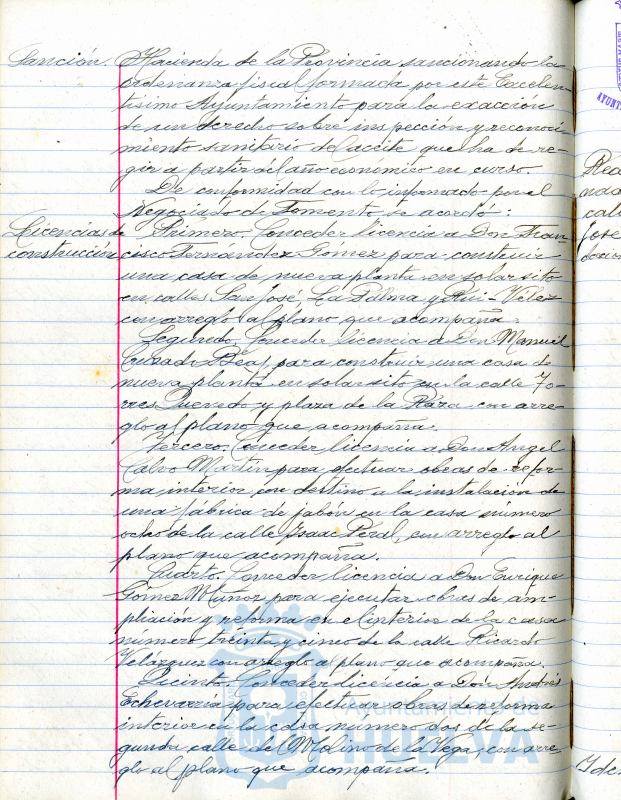 Sanción. Hacienda de la Provincia sancionando la
ordenanza fiscal formada por este Excelen-
tísimo Ayuntamiento para la exacción
de un derecho sobre inspección y reconoci-
miento sanitario del aceite que ha de re-
gir a partir del año económico en curso.
De conformidad con lo informado por el
Negociado de Fomento, se acordó:
Licencias de Primero. Conceder licencia a Don Fran-
construcción cisco Fernández Gómez para construir
una casa de nueva planta en solar sito
en calles San José, La Palma y Rui-Vélez
con arreglo al plano que acompaña.
Segundo. Conceder licencia a Don Manuel
Cruzado Béas, para construir una casa de
nueva planta en solar sito en la calle To-
rres Quevedo y plaza de la Raza con arre-
glo al plano que acompaña.
Tercero. Conceder licencia a Don Angel
Calvo Martín para efectuar obras de refor-
ma interior, con destino a la instalación de
una fábrica de jabón en la casa número
ocho de la calle Isaac Peral, con arreglo al
plano que acompaña.
Cuarto. Conceder licencia a Don Enrique
Gómez Muñoz para ejecutar obras de am-
pliación y reforma en el interior de la casa
número treinta y cinco de la calle Ricardo
Velázquez con arreglo al plano que acompaña.
Quinto. Conceder licencia a Don Andrés
Echevarría para efectuar obras de reforma
interior en la casa número dos de la se-
gunda calle del Molino de la Vega, con arre-
glo al plano que acompaña.
Ayuntamiento de
HUELVA